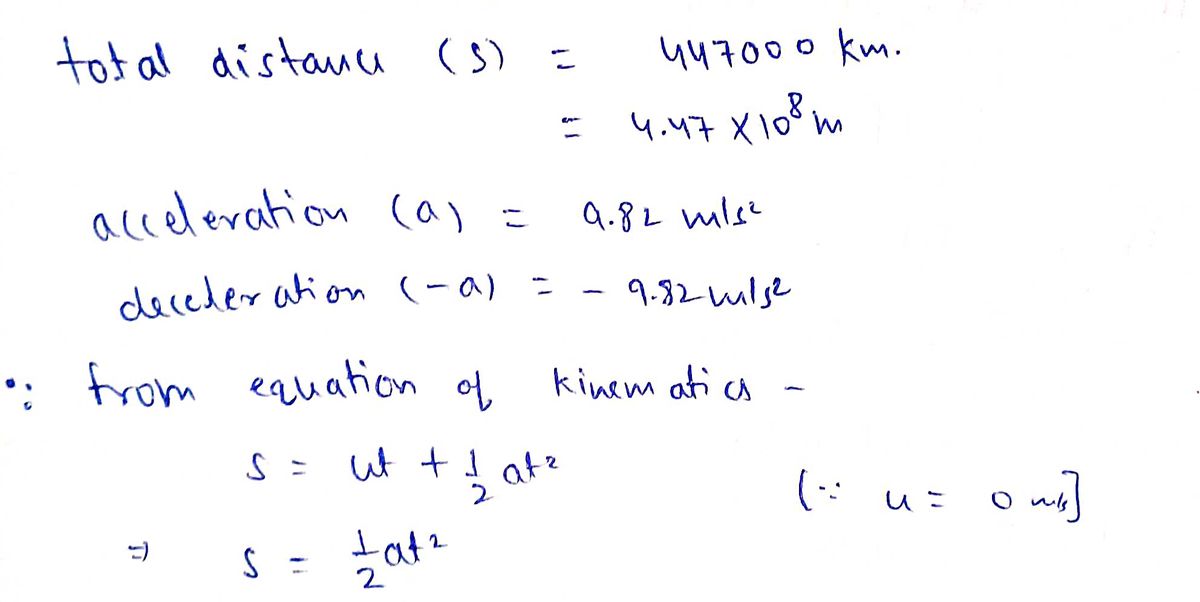 total distance (s) = 447000 km.
= 4.47 × 10⁸ m
acceleration (a) = 9.82 m/s²
deceleration (-a) = - 9.82 m/s²
∵ from equation of kinematics -
s = ut + 1/2 at²
(∵ u = 0 m/s]
⇒ s = 1/2 at²